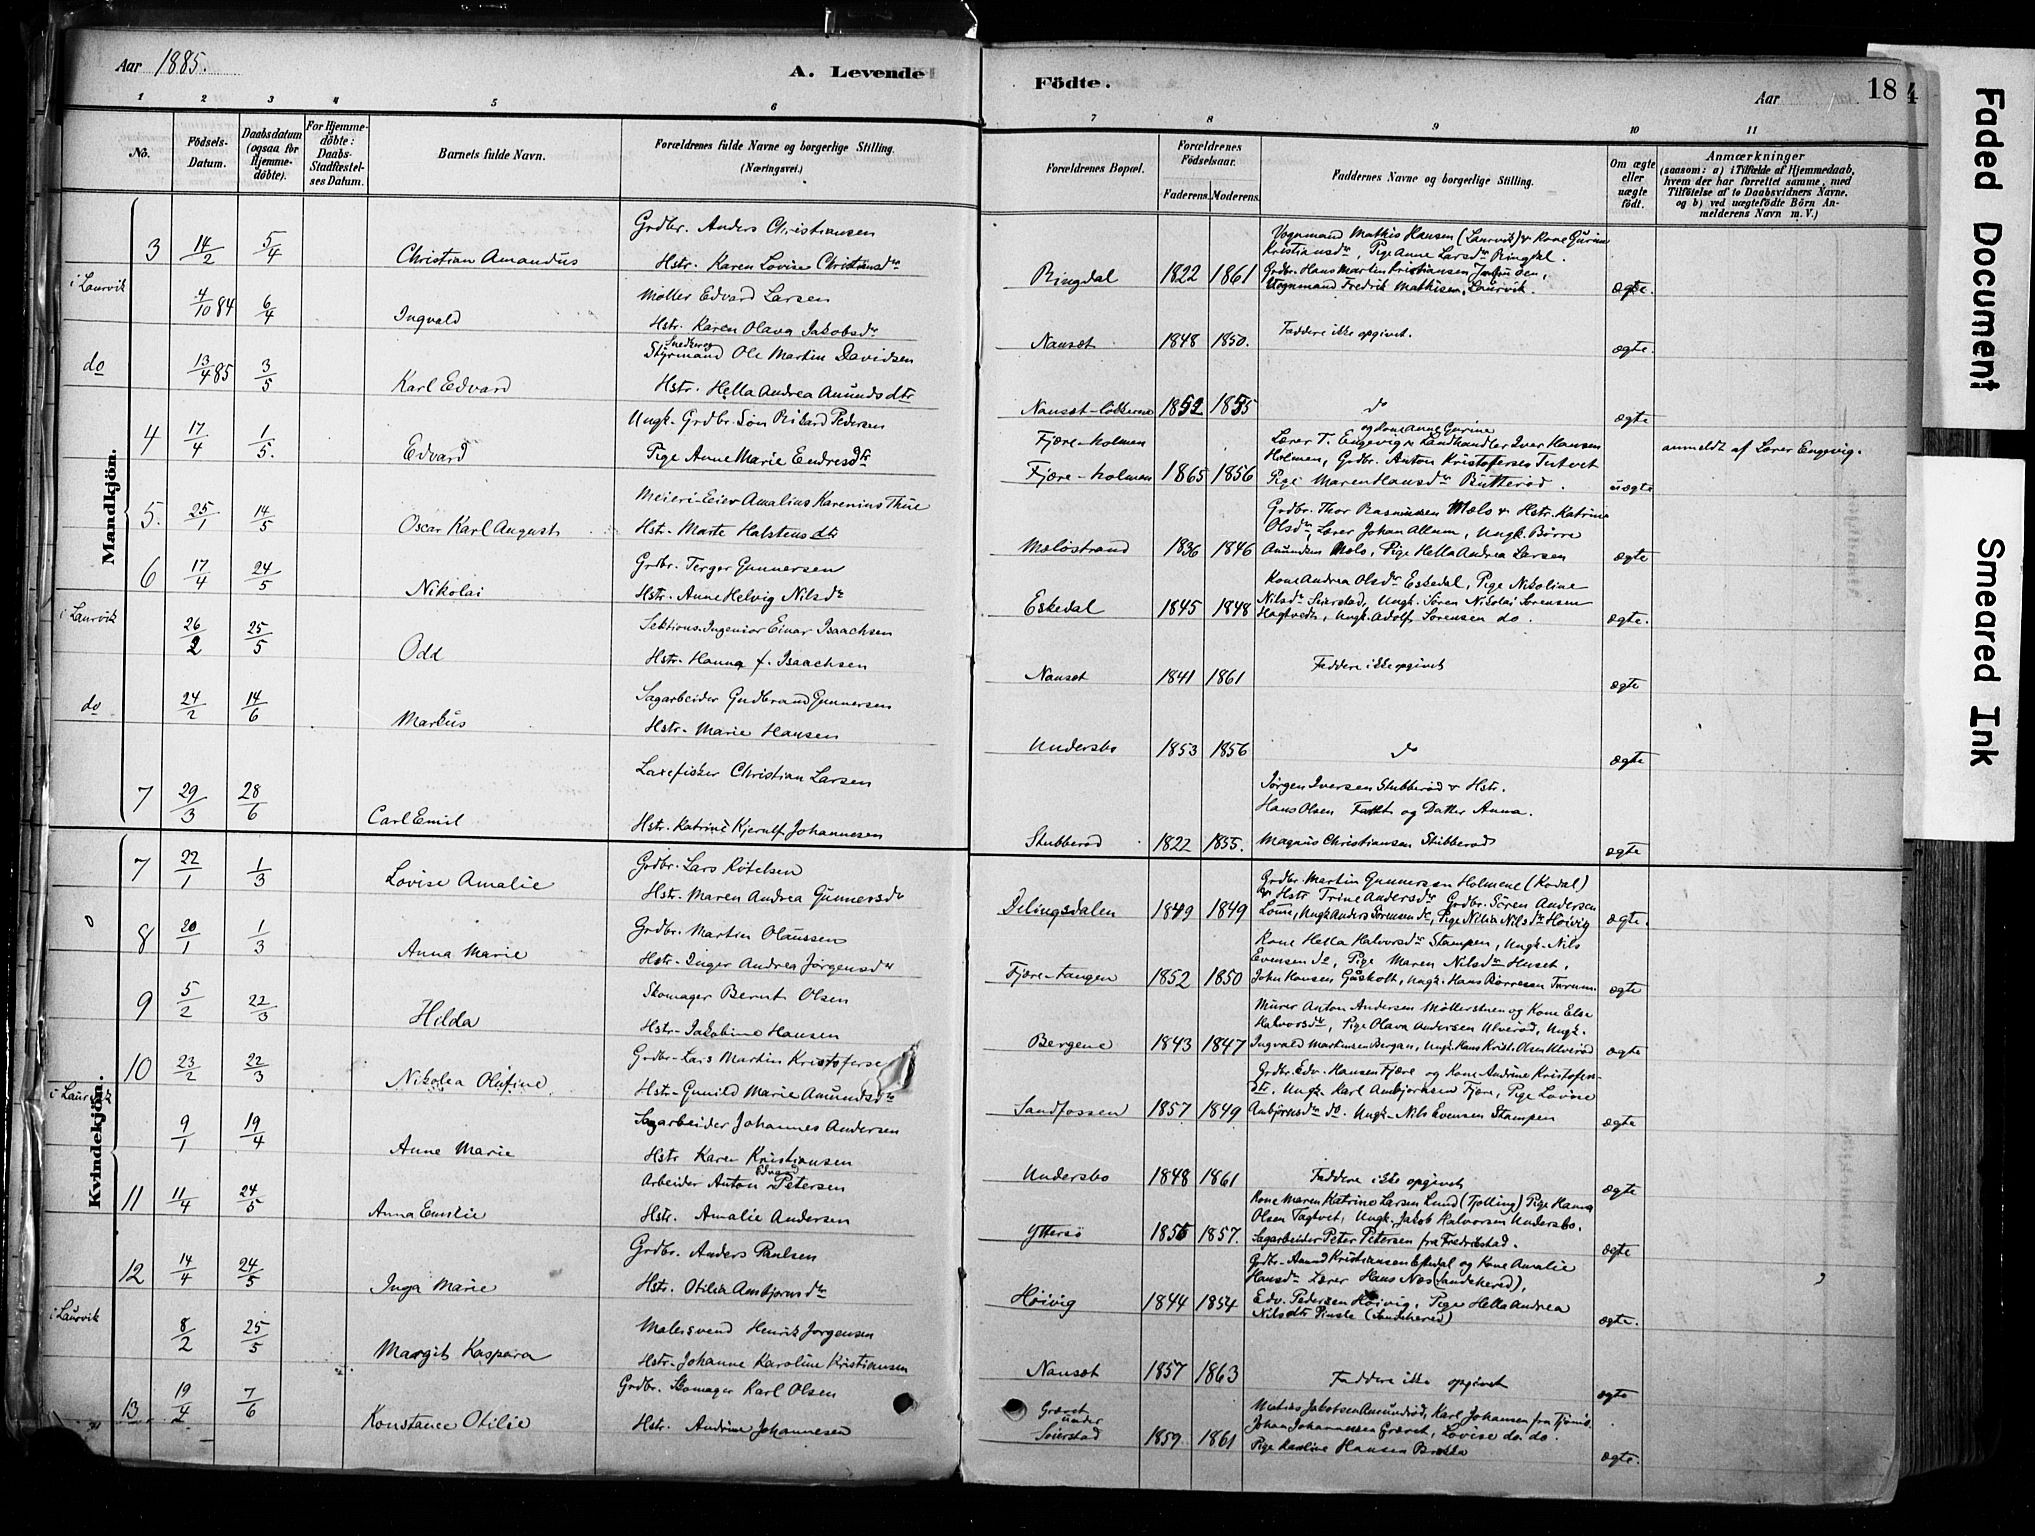 Aar 1885.
A. Levende
Födte.
Aar
18
4
Faded Document
Smeared Ink
1 2 3 4 5 6
7 8 9 10 11
No.
Födsels-Datum.
Daabsdatum (ogsaa for Hjemmedöbte).
For Hjemmedöbte: Daabs-Stadfæstelses Datum.
Barnets fulde Navn.
Forældrenes fulde Navne og borgerlige Stilling.
(Næringsvei.)
Forældrenes Bopæl.
Forældrenes Födselsaar.
Faderens. Moderens.
Faddernes Navne og borgerlige Stilling.
Om ægte eller uægte födt.
Anmærkninger
(saasom: a) i Tilfælde af Hjemmedaab, hvem der har forrettet samme, med Tilföielse af to Daabsvidners Navne. og b) ved uægtefödte Börn Anmelderens Navn m. V.)
Mandkjön.
3 14/2 5/4 Christian Amandus
Grdbr. Anders Christiansen
Hstr. Karen Lovise Christiansdtr
Ringdal 1822 1861
Vognmand Mathis Hansen (Laurvik) & Kone Gurine
Kristiansdr, Pige Anne Larsdr Ringdal.
Grdbr. Hans Martin Kristiansen
Vognmand Fredrik Mathisen, Laurvik.
ægte.
i Laurvik 4/10 84 6/4 Ingvald
Møller Edvard Larsen
Hstr. Karen Olava Jakobsdr
Nanset 1848 1850.
Faddere ikke opgivet.
ægte.
do 13/4 85 3/5 Karl Edvard
Snedker og
Styrmand Ole Martin Davidsen
Hstr. Hella Andrea Amundsdtr
Nanset-løkkerne 1852 1855 do ægte
4 17/4 1/5. Edvard
Ungk. Grdbr. Søn Rikard Pedersen
Pige Anne Marie Endresdtr
Fjære-holmen
Fjære-holmen 1865 1856
og Kone Anne Gurine
Lærer T. Engevig & Landhandler Iver Hansen
Holmen, Grdbr. Anton Kristofersen Tutvet
Pige Maren Hansdr Butterød.
uægte
anmeldt af Lærer Engevig.
5. 25/1 14/5 Oscar Karl August
Meieri-Eier Amalius Karenius Thue
Hst. Marte Halstensdtr
Meløstrand 1836 1846
Grdbr. Thor Rasmussen Melø & Hstr. Katrine
Olsdr, Lærer Johan Allum, Ungk. Børre
Amundsen Melø, Pige Hella Andrea Larsen
ægte
6 17/4 24/5 Nikolai
Grdbr. Terger Gunnersen
Hstr. Anne Helvig Nilsdr
Eskedal 1845 1848
Kone Andrea Olsdr Eskedal, Pige Nikoline
Nilsdr Seierstad, Ungk. Søren Nikolai Sørensen
Hagtvedt, Ungk. Adolf Sørensen do.
ægte.
i Laurvik 26/2 25/5 Odd
Sektions-Ingeniør Einar Isaachsen
Hstr. Hanna f. Isaachsen
Nanset 1841 1861
Faddere ikke opgivet
ægte
do 24/2 14/6 Markus
Sagarbeider Gudbrand Gunnersen
Hstr. Marie Hansen
Undersbo 1853 1856 do ægte
7 29/3 28/6 Carl Emil
Laxefisker Christian Larsen
Hstr. Katrine Kjerulf Johannesen
Stubberød 1822 1855.
Jørgen Iversen Stubberød & Hstr.
Hans Olsen og Datter Anna.
Magnus Christiansen Stubberød
ægte
Kvindekjön.
7 22/1 1/3 Lovise Amalie
Grdbr. Lars Kitelsen
Hstr. Maren Andrea Gunnersdr
Delingsdalen 1849 1849
Grdbr. Martin Gunnersen Holmene (Kodal)
& Hstr Trine Andersdr Grdbr. Søren Andersen
Løue, Ungk Anders Sørensen do, Pige Nilia Nilsdr Høivig
ægte.
8 20/1 1/3 Anna Marie
Grdbr. Martin Olaussen
Hstr. Inger Andrea Jørgensdr
Fjære-tangen 1852 1850
Kone Hella Halvorsdr Stampen, Ungk. Nils
Evensen do, Pige Maren Nilsdr Huset,
John Hansen Gusholt, Ungk. Hans Børresen Tveum.
ægte
9 5/2 22/3 Hilda
Skomager Bernt Olsen
Hstr. Jakobine Hansen
Bergene 1843 1847
Murer Anton Andersen Møllerstuen og Kone Else
Halvorsdr, Pige Olava Andersen Ulverød, Ungk.
Ingvald Martinsen Bergan, Ungk. Hans Krist. Olsen Ulverød
ægte
10 23/2 22/3 Nikolea Olufine
Grdbr. Lars Martin Kristoferse
Hstr. Gunild Marie Amundsdr
Sandfossen 1857 1849
Grdbr. Edv. Hansen Fjære og Kone Andrine Kristofers-
dtr, Ungk. Karl Ambjørnsen Fjære, Pige Lovise
Ambjørnsdr do. Ungk. Nils Evensen Stampen
ægte
i Laurvik 9/1 19/4 Anne Marie
Sagarbeider Johannes Andersen
Hstr Karen Kristiansen
Undersbo 1848 1861
Faddere ikke opgivet
ægte
11 11/4 24/5 Anna Emilie
Edvard
Arbeider Anton Petersen
Hstr. Amalie Andersen
Yttersø 1856 1857.
Kone Maren Katrine Larsen Lund (Tjølling) Pige Hanna
Olsen Tagtvet, Ungk. Jakob Halvorsen Undersbo.
Sagarbeider Peter Petersen fra Fredrikstad.
ægte
12 14/4 24/5 Inga Marie
Grdbr. Anders Paulsen
Hstr. Otilia Ambjørnsdr
Høivig 1844 1854
Grdbr. Amund Kristiansen Eskedal og Kone Amalie
Hansdr Lærer Hans Næs (Sandehered),
Edv. Pedersen Høivig, Pige Hella Andrea
Nilsdtr (Sandehered)
ægte.
i Laurvik 8/2 25/5 Margit Kaspara
Malersvend Henrik Jørgensen
Hstr. Johanne Karoline Kristiansen
Nanset 1857 1863
Faddere ikke opgivet
ægte
13 19/4 7/6 Konstance Otilie
Grdbr. Skomager Karl Olsen
Hstr. Andrine Johannesen
Grævet under Seierstad 1859 1861
Mathias Jakobsen Amundrød, Karl Johansen fra Tjømø.
Johan Johannessen Grævet, Lovise do do.
Pige Karoline Hansen
ægte.